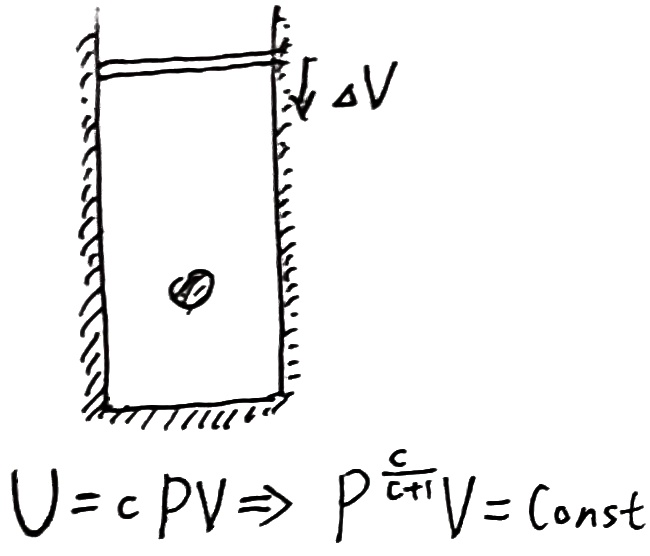 ΔV
U = c PV ⇒ P^{\frac{c}{c+1}} V = Const